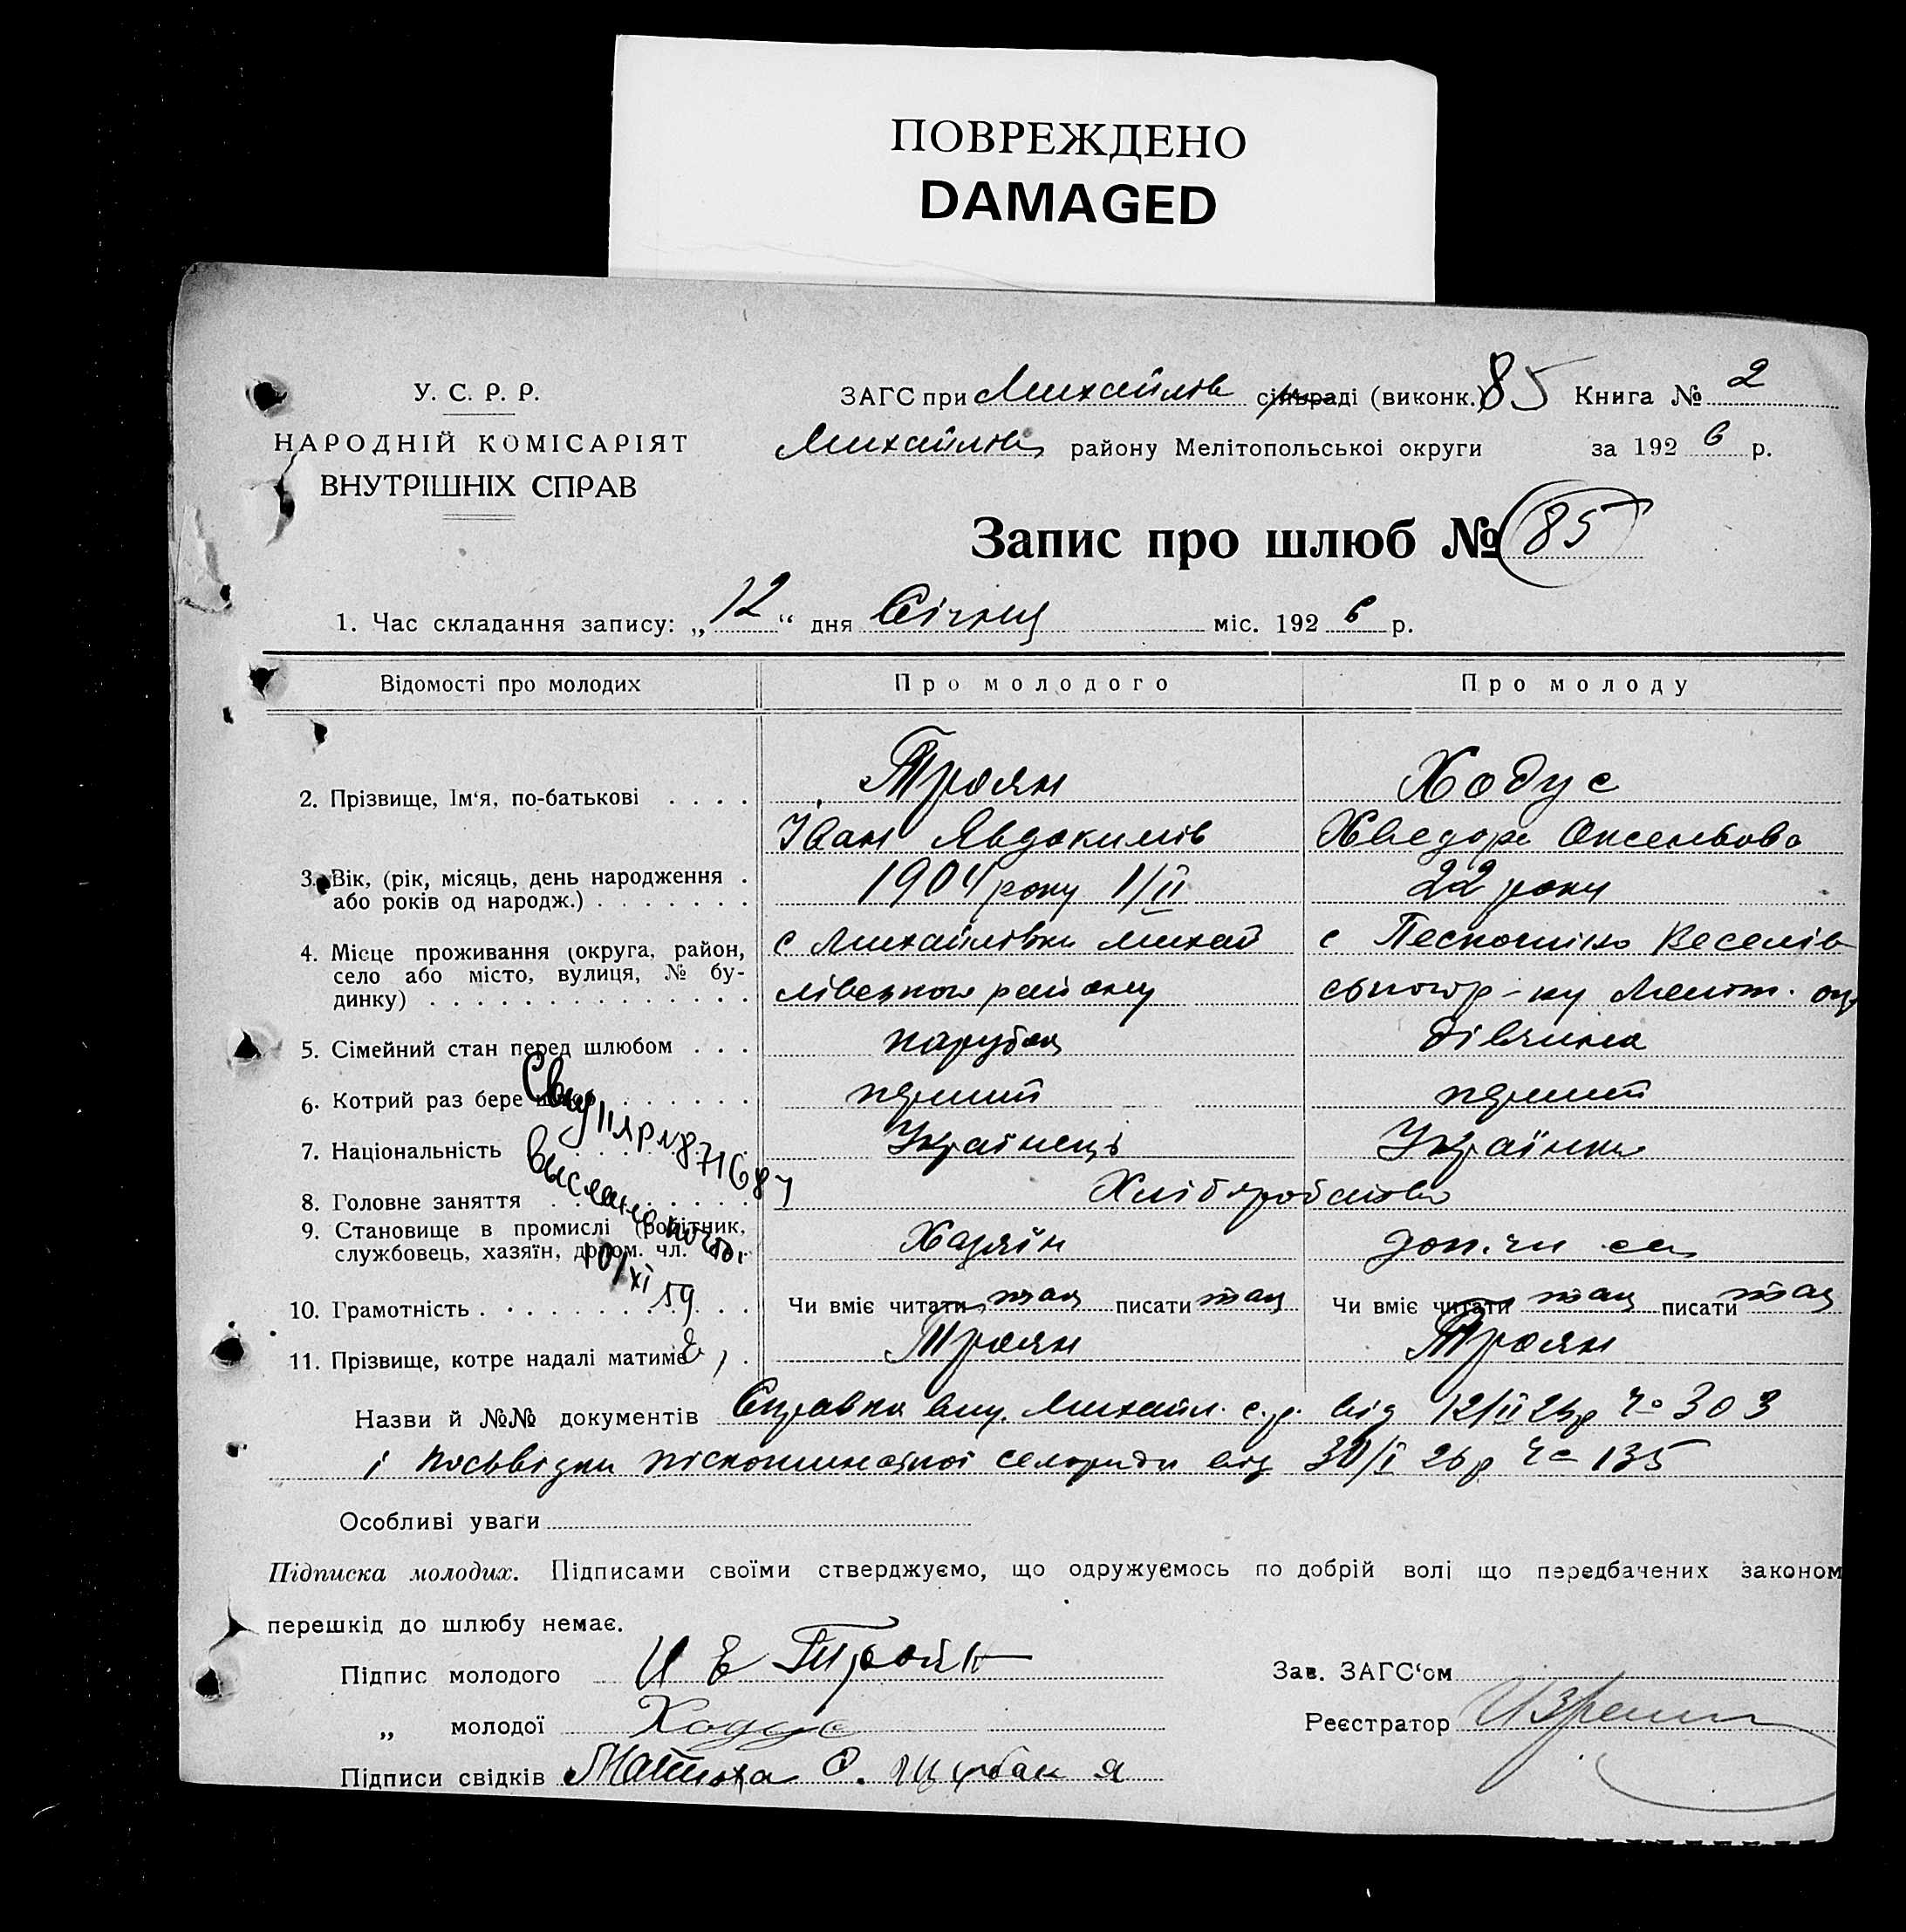 ПОВРЕЖДЕНО
DAMAGED
У. С. Р. Р.
НАРОДНІЙ КОМІСАРІЯТ
ВНУТРІШНІХ СПРАВ
ЗАГС при Михайлів сільраді (виконк.) 85 Книга № 2
Михайлів району Мелітопольської округи за 1926 р.
Запис про шлюб № 85
1. Час складання запису: „12“ дня Січня міс. 1926 р.
Відомості про молодих Про молодого Про молоду
2. Прізвище, Ім‘я, по-батькові . . . . Троян Ходус
Іван Явдокимів Хведора Оксентьова
3. Вік, (рік, місяць, день народження . 1904 року 1/II 22 роки
або років од народж.) . . . . . . .
4. Місце проживання (округа, район, с Михайлівки Михай с Пескошино Веселів
село або місто, вулиця, № бу-
динку) . . . . . . . . . . . . . . лівського району ського р-ну Меліт. окр
5. Сімейний стан перед шлюбом . . . парубок дівчина
6. Котрий раз бере шлюб . . . . . . перший перший
7. Національність Українець Українка
8. Головне заняття Хліборобство
9. Становище в промислі (робітник, Хазяїн доп. чл сем
службовець, хазяїн, допом. чл.
10. Грамотність . . . . . . . . Чи вміє читати так писати так Чи вміє читати так писати так
11. Прізвище, котре надалі матиме Троян Троян
10/XI 59
Назви й №№ документів Справка вид. Михайл. с.р. від 12/II 26р Чо 303
і посьвідки піскошинської сельради від 30/I 26р Чо 135
Особливі уваги
Підписка молодих. Підписами своїми стверджуємо, що одружуємось по добрій волі що передбачених законом
перешкід до шлюбу немає.
Підпис молодого И Е Троян Зав. ЗАГС‘ом
„ молодої Ходус Реєстратор
Підписи свідків Матюха С.